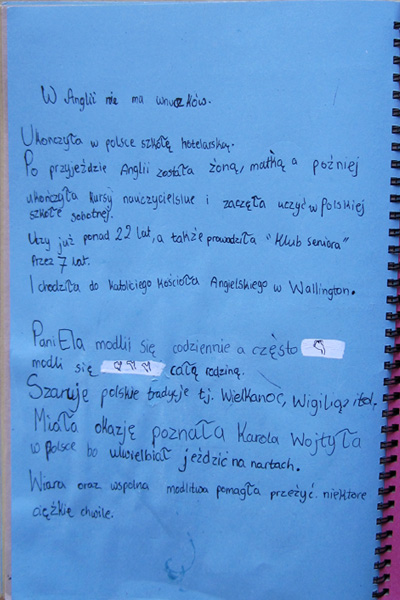 W Anglii nie ma wnuczków.
Ukończyła w polsce szkołę hotelarską.
Po przyjeździe Anglii została żoną, matką a poźniej
ukończyła kursy nauczycielskie i zaczęła uczyć w Polskiej
szkole sobotnej.
Uczy już ponad 22 lat, a także prowadziła "Klub seniora"
Przez 7 lat.
I chodziła do katolickiego kościoła Angielskiego w Wallington.
Pani Ela modli się codziennie a często
modli się całą rodziną.
Szanuje polskie tradycje tj. Wielkanoc, Wigilia itd.
Miała okazję poznała Karola Wojtyła
w Polsce bo uwielbiał jeździć na nartach.
Wiara oraz wspolna modlitwa pomagła przeżyć niektore
ciężkie chwile.